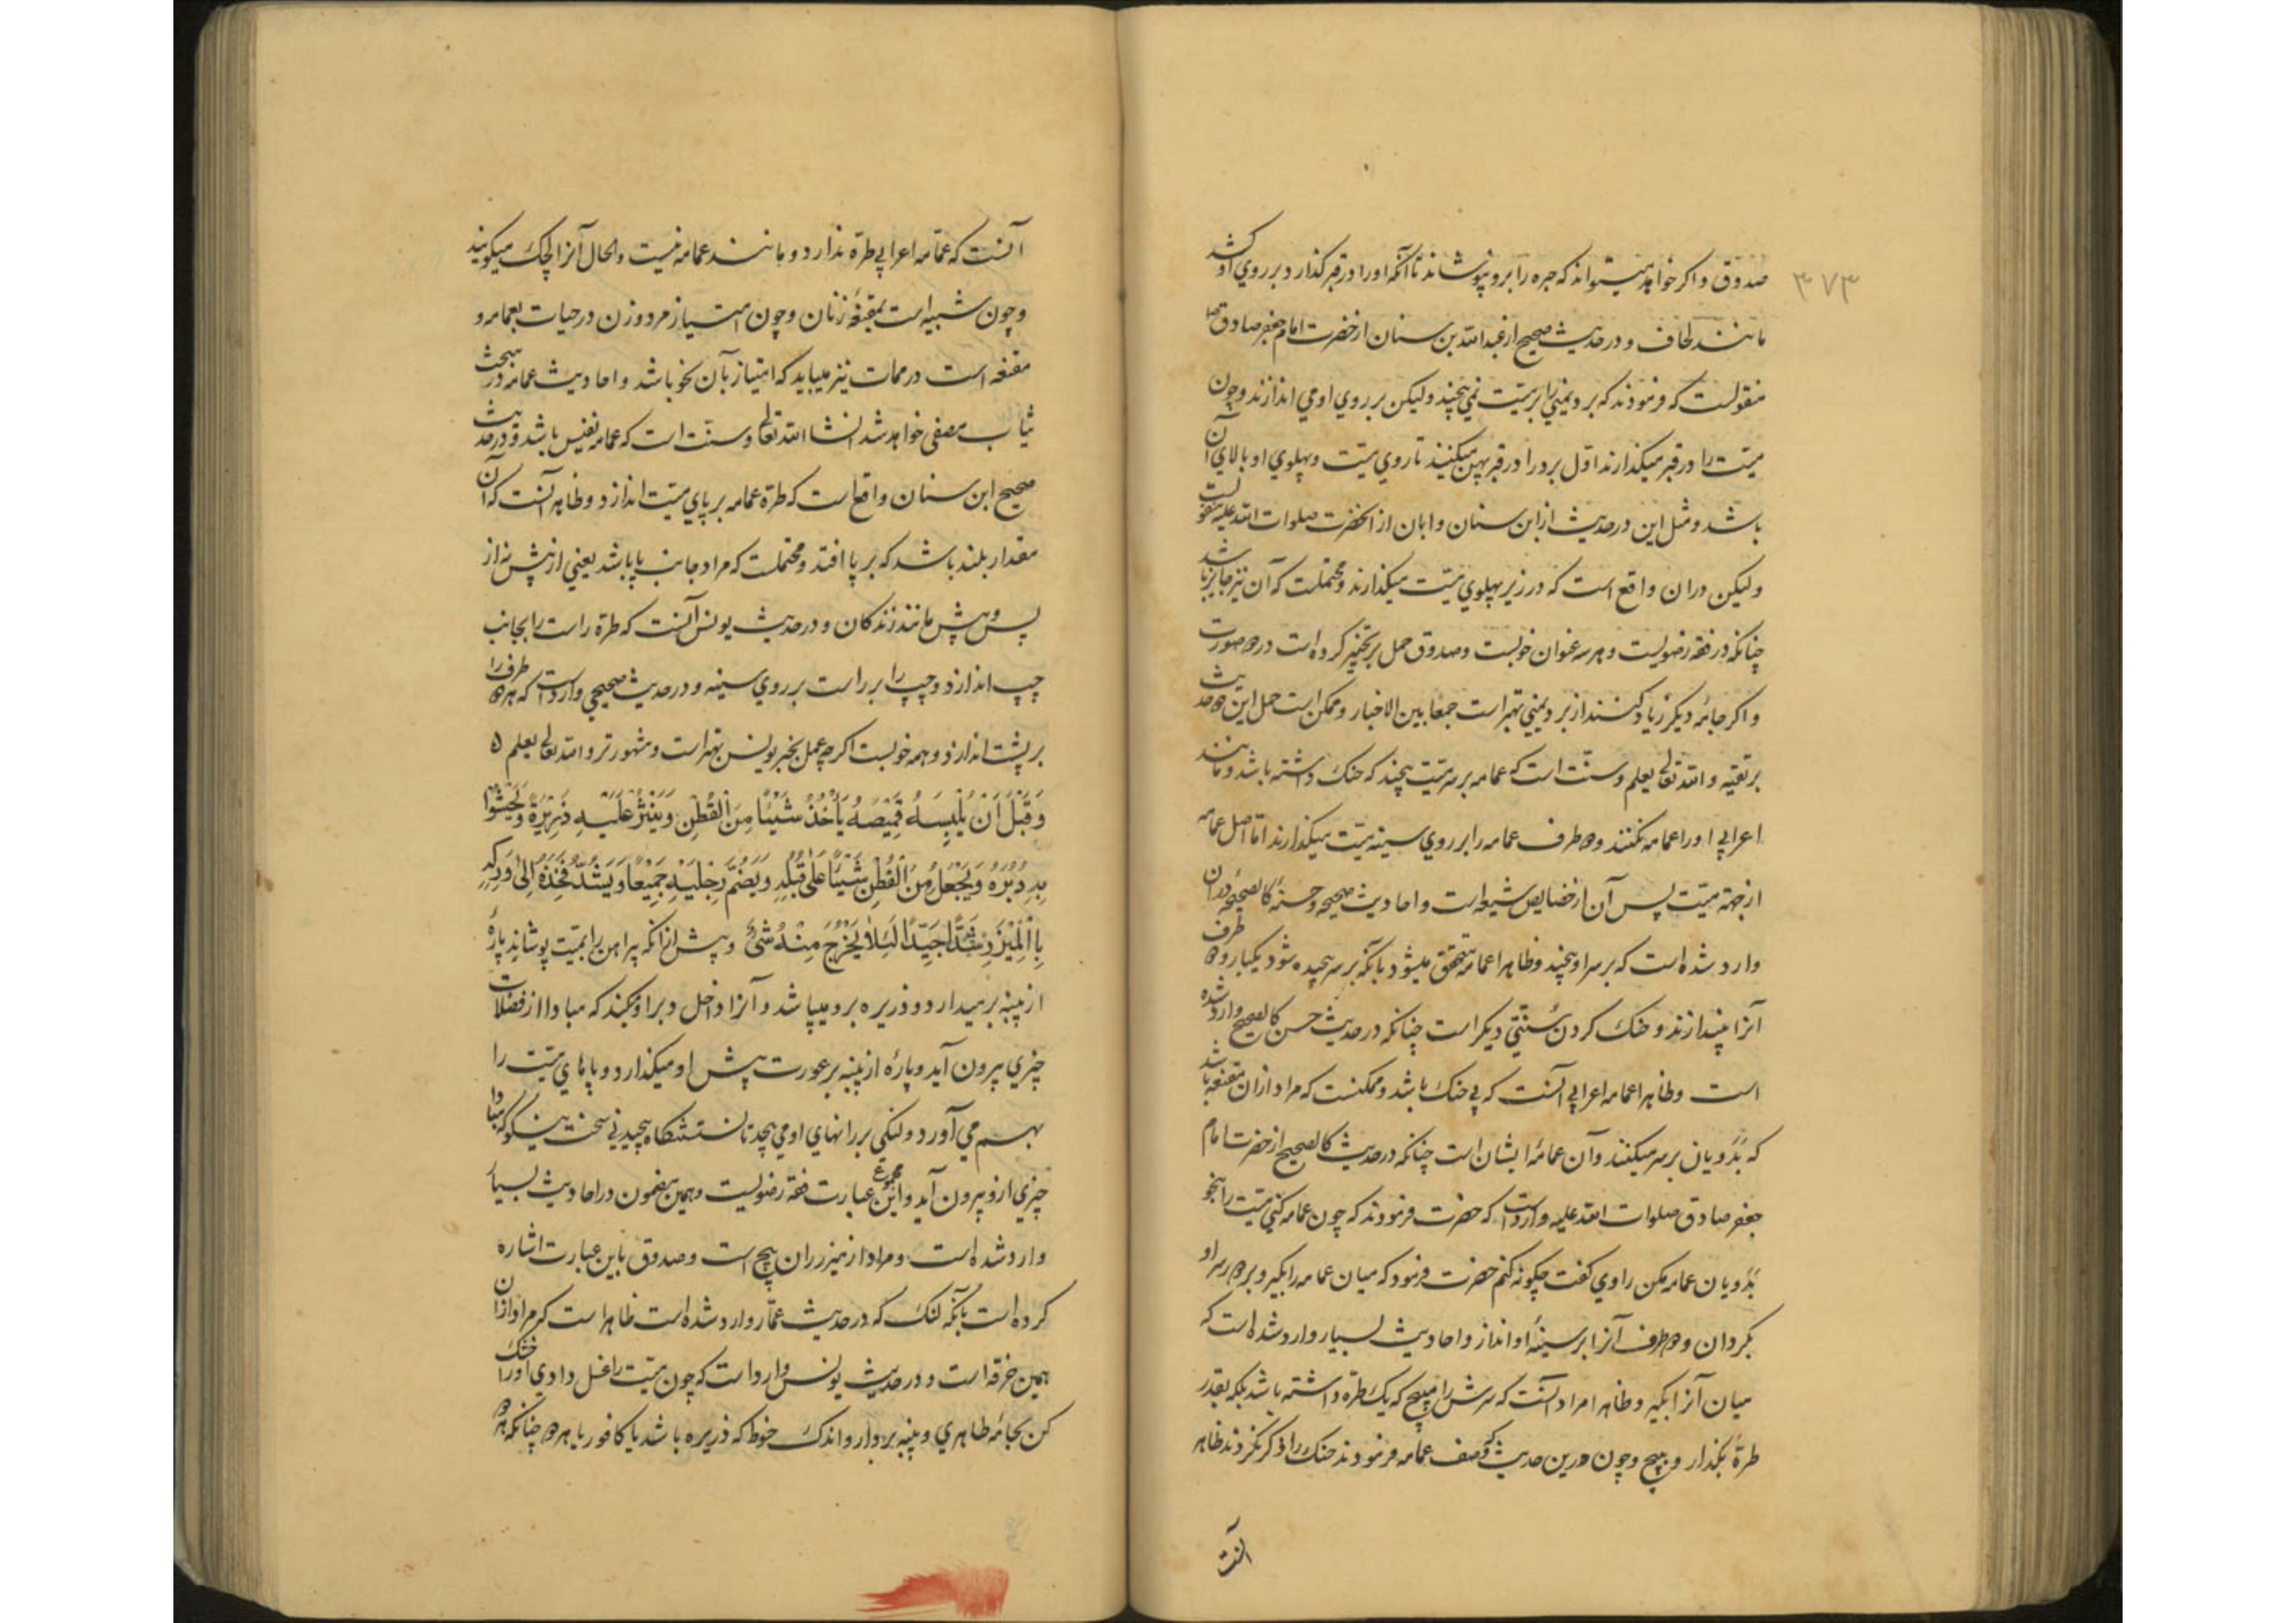 ۳۷۳
صدوق و اگر خواهد میتواند که حبره را برو نپوشاند تا آنکه او را در قبر گذارد و بر روي او کشد
مانند لحاف و در حدیث صحیح از عبد الله بن سنان از حضرت امام جعفر صادق ص
منقولست که فرمودند که برد یمني را بر میت نمي پیچند ولیکن بر روي او مي اندازند و چون
میت را در قبر میگذارند اول برد را در قبر پهن میکنند تا روي میت و پهلوي او بالاي آن
باشد و مثل این در حدیث از ابن سنان و ابان از آنحضرت صلوات الله علیه منقولست
ولیکن در ان واقع است که در زیر پهلوي میت میگذارند و محتملست که آن نیز جایز باشد
چنانکه در فقه رضویست و هر سه عنوان خوبست و صدوق حمل بر تخییر کرده است درین صورت
و اگر جامه دیگر زیاد کنند از برد یمني بهتر است جمعا بین الاخبار و ممکن است حمل این دو حدیث
بر تقیه و الله تعالی یعلم و سنت است که عمامه بر سر میت پیچند که حنک داشته باشد و مانند
اعرابي او را عمامه نکنند و دو طرف عمامه را بر روي سینه میت میگذارند اما اصل عمامه
از جهة میت پس آن از خصایص شیعه است و احادیث صحیحه و حسنه کالصحیحه در ان
وارد شده است که بر سر او پیچند و ظاهرا عمامه متحقق میشود بانکه بر سر پیچیده شود یکبار و دو طرف
آنرا بیندازند و حنک کردن سنتي دیگر است چنانکه در حدیث حسن کالصحیح وارد شده
است و ظاهرا عمامه اعرابي آنست که بي حنک باشد و ممکنست که مراد از ان مقنعه باشد
که بدویان بر سر میکنند و آن عمامه ایشان است چنانکه در حدیث کالصحیح از حضرت امام
جعفر صادق صلوات الله علیه وارد است که حضرت فرمودند که چون عمامه کني میت را بنحو
بدویان عمامه مکن راوي گفت چگونه کنم حضرت فرمود که میان عمامه را بگیر و بر دور سر او
بگردان و دو طرف آنرا بر سینه او انداز و احادیث بسیار وارد شده است که
میان آنرا بگیر و ظاهرا مراد آنست که سرش را مپیچ که یک طره داشته باشد بلکه بقدر
طره بگذار و بپیچ و چون درین حدیث که وصف عمامه فرمودند حنک را ذکر نکردند ظاهر
آنست
آنست که عمامه اعرابي طره ندارد و مانند عمامه نیست و الحال آنرا لچک میگویند
و چون شبیه است بمقنعه زنان و چون امتیاز مرد و زن در حیات بعمامه و
مقنعه است در ممات نیز میباید که امتیاز بآن نحو باشد و احادیث عمامه در مبحث
ثیاب مصفی خواهد شد انشا الله تعالی و سنت است که عمامه نفیس باشد و در حدیث
صحیح ابن سنان واقع است که طره عمامه بر پاي میت اندازد و ظاهر آنست که آن
مقدار بلند باشد که بر پا افتد و محتملست که مراد جانب پا باشد یعني از پیش نه از
پس و پیش مانند زندگان و در حدیث یونس آنست که طره راست را بجانب
چپ اندازد و چپ را بر راست بر روي سینه و در حدیث صحیحي وارد است که هر دو طرف را
بر پشت اندازد و همه خوبست اگر چه عمل بخبر یونس بهتر است و مشهورتر و الله تعالی یعلم ه
وَقَبْلَ أَنْ يُلْبِسَهُ قَمِيصَهُ يَأْخُذُ شَيْئًا مِنَ الْقُطْنِ وَيَنْثُرُ عَلَيْهِ ذَرِيرَةً وَيَحْشُوا
بِهِ دُبُرَهُ وَيَجْعَلُ مِنَ الْقُطْنِ شَيْئًا عَلَى قُبُلِهِ وَيَضُمُّ رِجْلَيْهِ جَمِيعًا وَيَشُدُّ فَخِذَهُ إِلَى وَرِكِهِ
بِالْمِئْزَرِ شَدًّا جَيِّدًا لِئَلَّا يَخْرُجَ مِنْهُ شَيْءٌ و پیش از انکه پیراهن را بمیت پوشاند پاره
از پنبه بر میدارد و ذریره برو میپاشد و آنرا داخل دبر او میکند که مبادا از فضلات
چیزي بیرون آید و پاره از پنبه بر عورت پیش او میگذارد و پاهاي میت را
بهم مي آورد و لنگي بر رانهاي او مي پیچد تا نشستنگاه پیچیدني سخت نیکو که مبادا
چیزي از و بیرون آید و این مجموع عبارت فقه رضویست و همین مضمون در احادیث بسیار
وارد شده است و مراد از میزر ران پیچ است و صدوق باین عبارت اشاره
کرده است بآنکه لنگ که در حدیث عمار وارد شده است ظاهر است که مراد از ان
همین خرقه است و در حدیث یونس وارد است که چون میت را غسل دادي او را خشک
کن بجامه طاهري و پنبه بردار و اندک حنوط که ذریره باشد یا کافور یا هر دو چنانکه هر دو